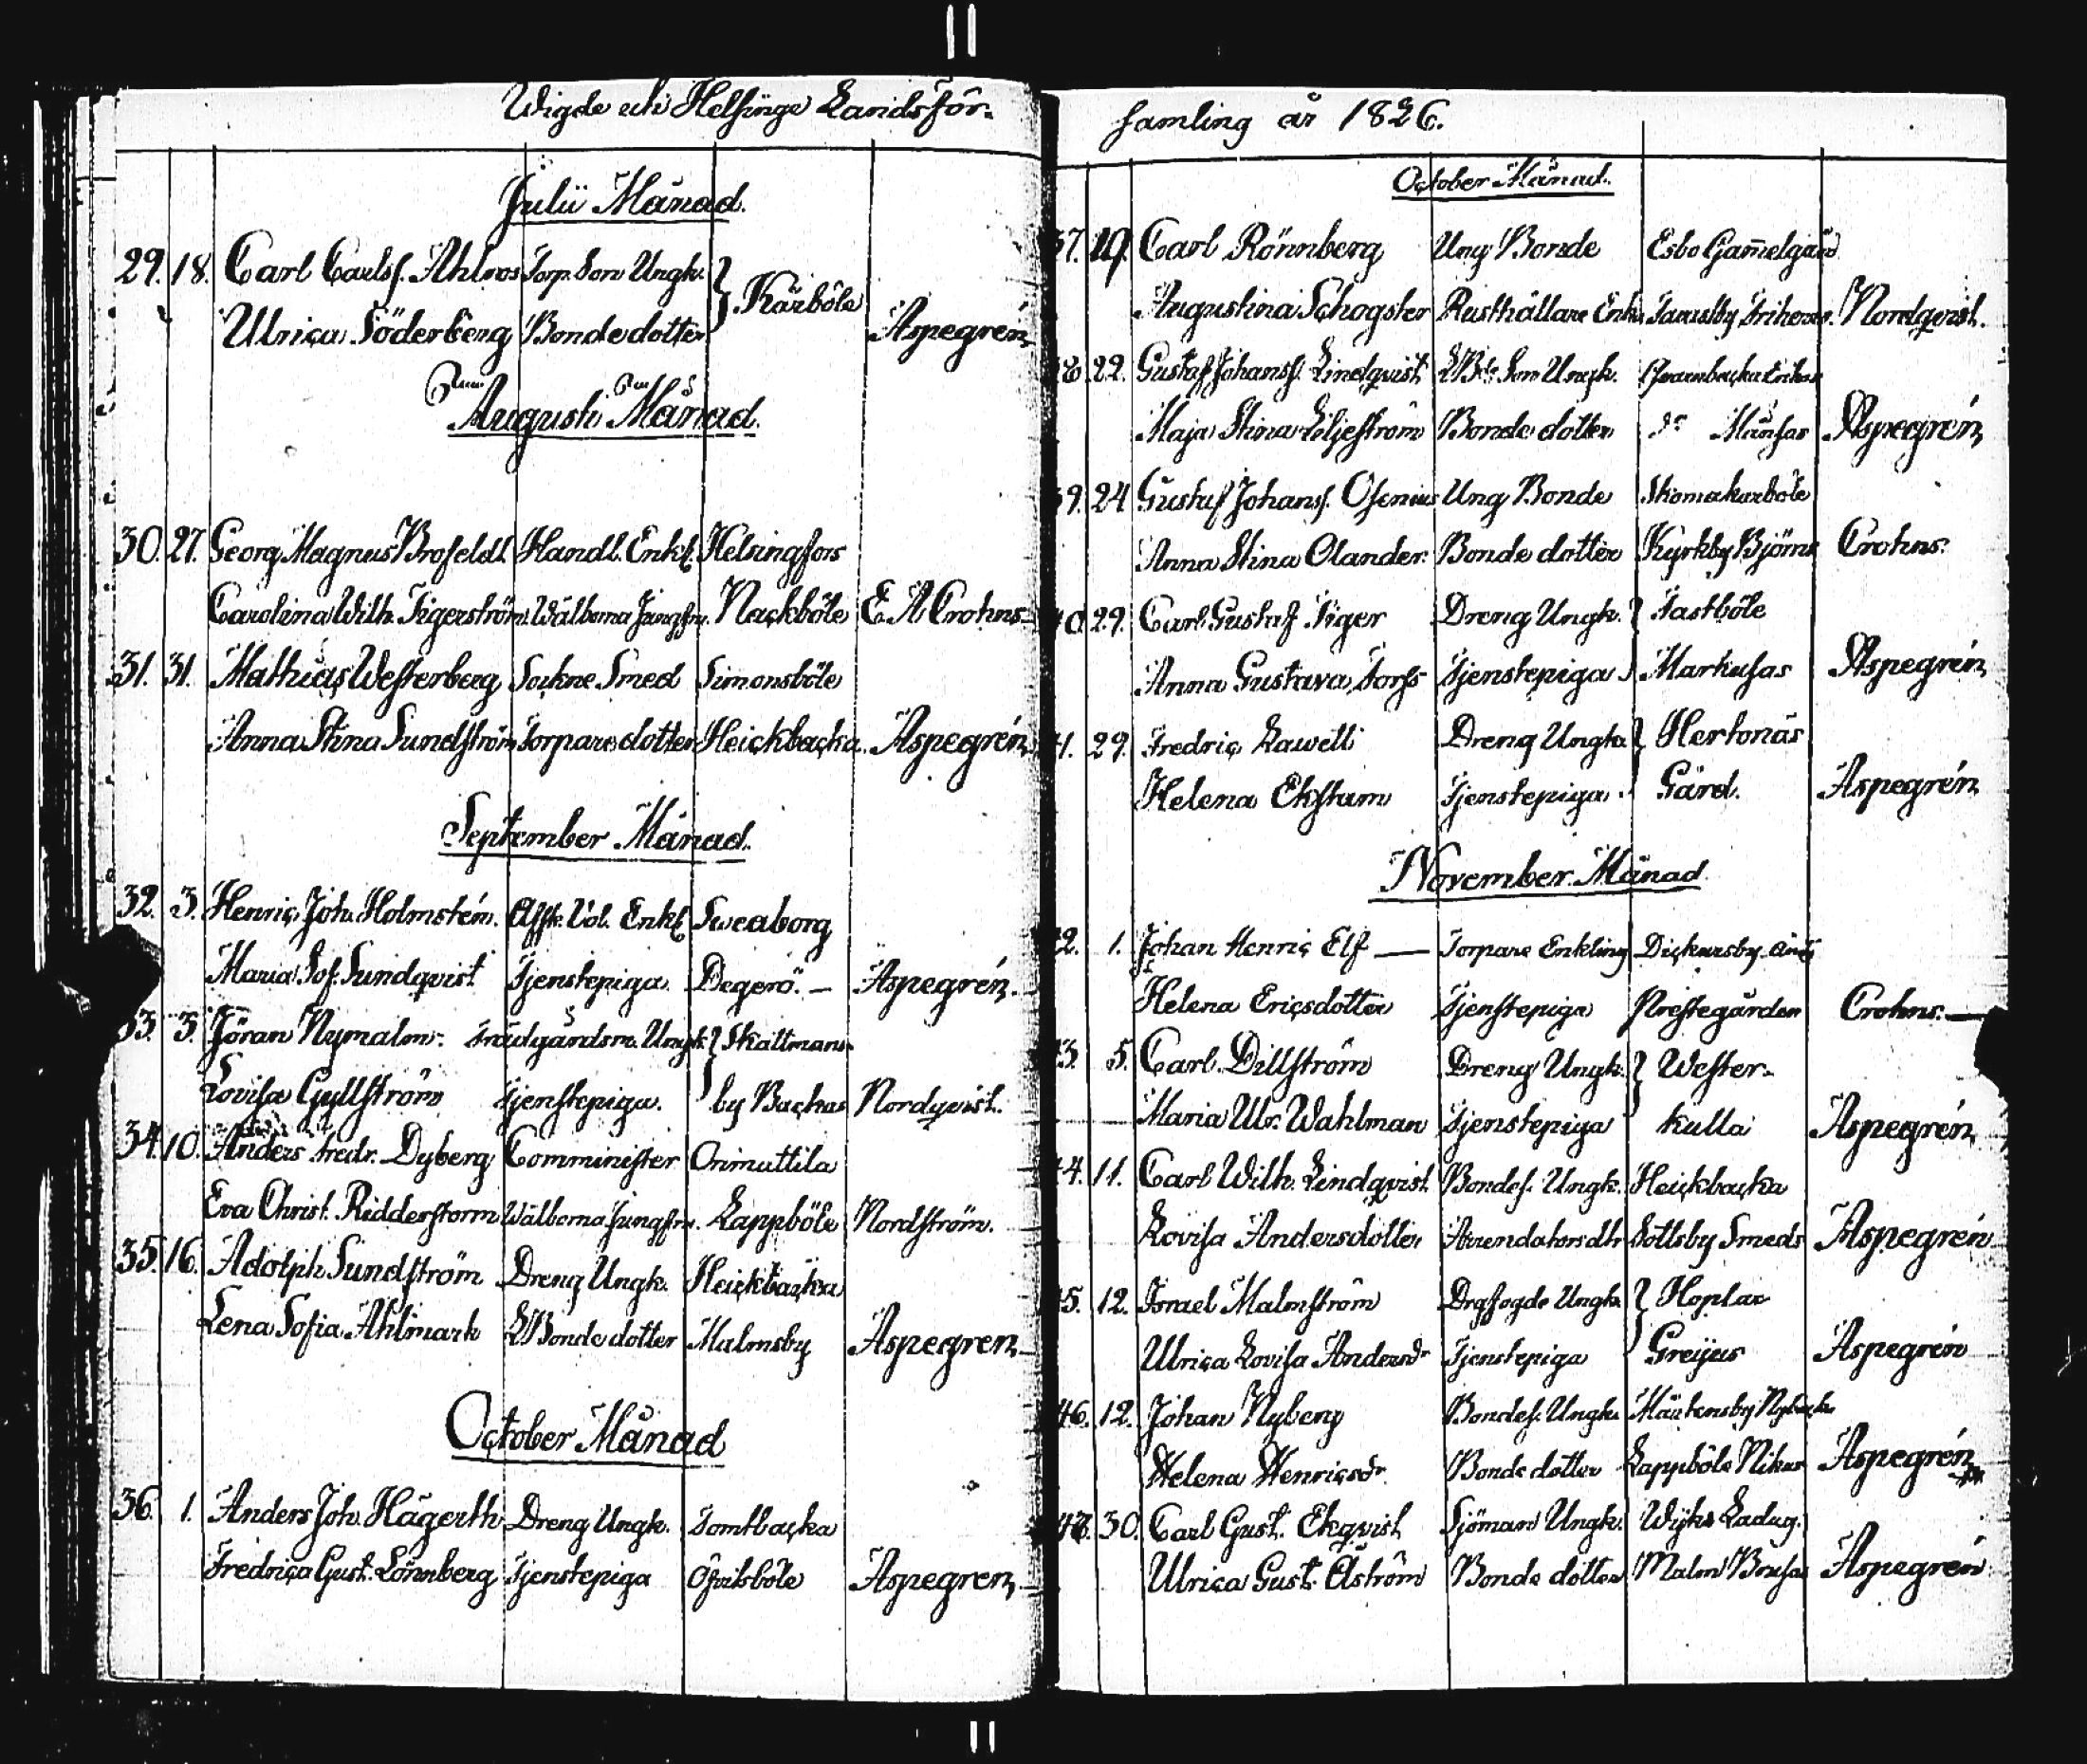 Wigde uti Helsinge Landsför-
Julii Månad.
29. 18. Carl Carlss. Ahlroos Torp. Son Ungk. } Kårböle
Ulrica Söderberg Bondedotter Aspegrén
Augusti Månad.
30. 27. Georg Magnus Brofeldt Handl. Enkl. Helsingfors
Carolina Wilh. Tigerström Wälborna Jungfru. Nackböle E A Crohns
31. 31. Mathias Westerberg Sockne Smed Simonsböle
Anna Stina Sundström Torpare dotter Heickbacka Aspegrén
September Månad.
32. 3. Henric Joh. Holmstén. Enkl Sweaborg
Maria Sof. Sundqvist Tjenstepiga. Degerö. — Aspegrén.
33. 3. Jöran Nymalm. Trädgårdsm. Ungk. } Skattmans-
Lovisa Gyllström Tjenstepiga. by Backas Nordqvist.
34. 10. Anders Fredr. Dyberg Comminister Orimattila
Eva Christ. Ridderstorm Wälborna Jungfru. Lappböle Nordström.
35. 16. Adolph Sundström Dreng Ungk. Heickbacka
Lena Sofia Ahlmark LBonde dotter Malmsby Aspegren
October Månad
36. 1. Anders Joh. Hägerth Dreng Ungk. Tomtbacka
Fredrica Gust. Lönnberg Tjenstepiga Öfvitsböle Aspegren
samling år 1826.
October Månad.
37. 19. Carl Rönnberg Ung Bonde Esbo Gam̄elgård
Augustina Schogster Rusthållare Enka Nordqvist.
38. 22. Gustaf Johanss. Lindqvist LBde Son Ungk.
Maja Stina Liljeström Bonde dotter do Månsas Aspegrén
39. 24 Gustaf Johanss. Osenius Ung Bonde Skomakarböle
Anna Stina Olander. Bonde dotter Kyrkby Björns Crohns.
40. 29. Carl Gustaf Tiger Dreng Ungk. } Tastböle
Anna Gustava Torss Tjenstepiga Markusas Aspegrén
41. 29. Fredric Lawell Dreng Ungk } Hertonäs
Helena Ekstam Tjenstepiga Gård. Aspegrén
November Månad
42. 1. Johan Henric Elf — Torpare Enkling Dickursby
Helena Ericsdotter Tjenstepiga Prestegården Crohns. —
43. 5. Carl Dillström Dreng Ungk. } Wester-
Maria Ulr. Wahlman Tjenstepiga kulla Aspegrén
44. 11. Carl Wilh. Lindqvist Bondes. Ungk. Heickbacka
Lovisa Andersdotter Arrendatorsdtr Sottsby Smeds Aspegrén
45. 12. Israel Malmström Drgfogde Ungk. } Hoplax
Ulrica Lovisa Andersdr Tjenstepiga Greijus Aspegrén
46. 12. Johan Nyberg Bondes. Ungk. Mårtensby Nybacka
Helena Henricsdr. Bonde dotter Lappböle Nikus Aspegrén
47. 30. Carl Gust. Ekqvist Sjöman Ungk. Wijks Ladug.
Ulrica Gust. Åström Bonde dotter Malm Brusas Aspegrén